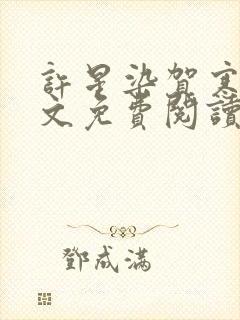 許星染賀寒
文免費閱讀
鄧成滿